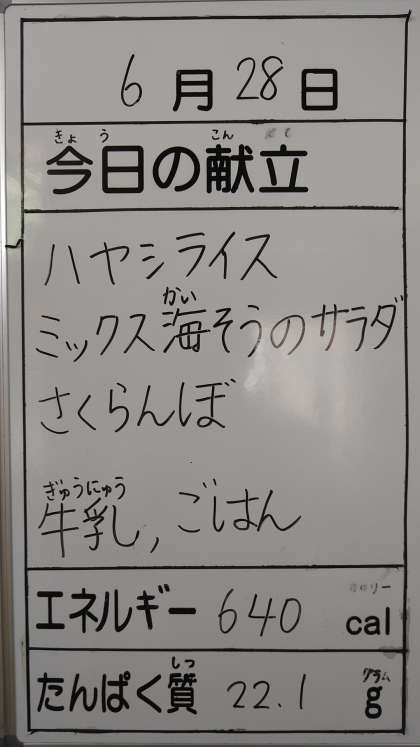 6月28日
きょう こん
今日の献立
ハヤシライス
かい
ミックス海そうのサラダ
さくらんぼ
ぎゅうにゅう
牛乳, ごはん
エネルギー 640 cal
しつ グラム
たんぱく質 22.1 g